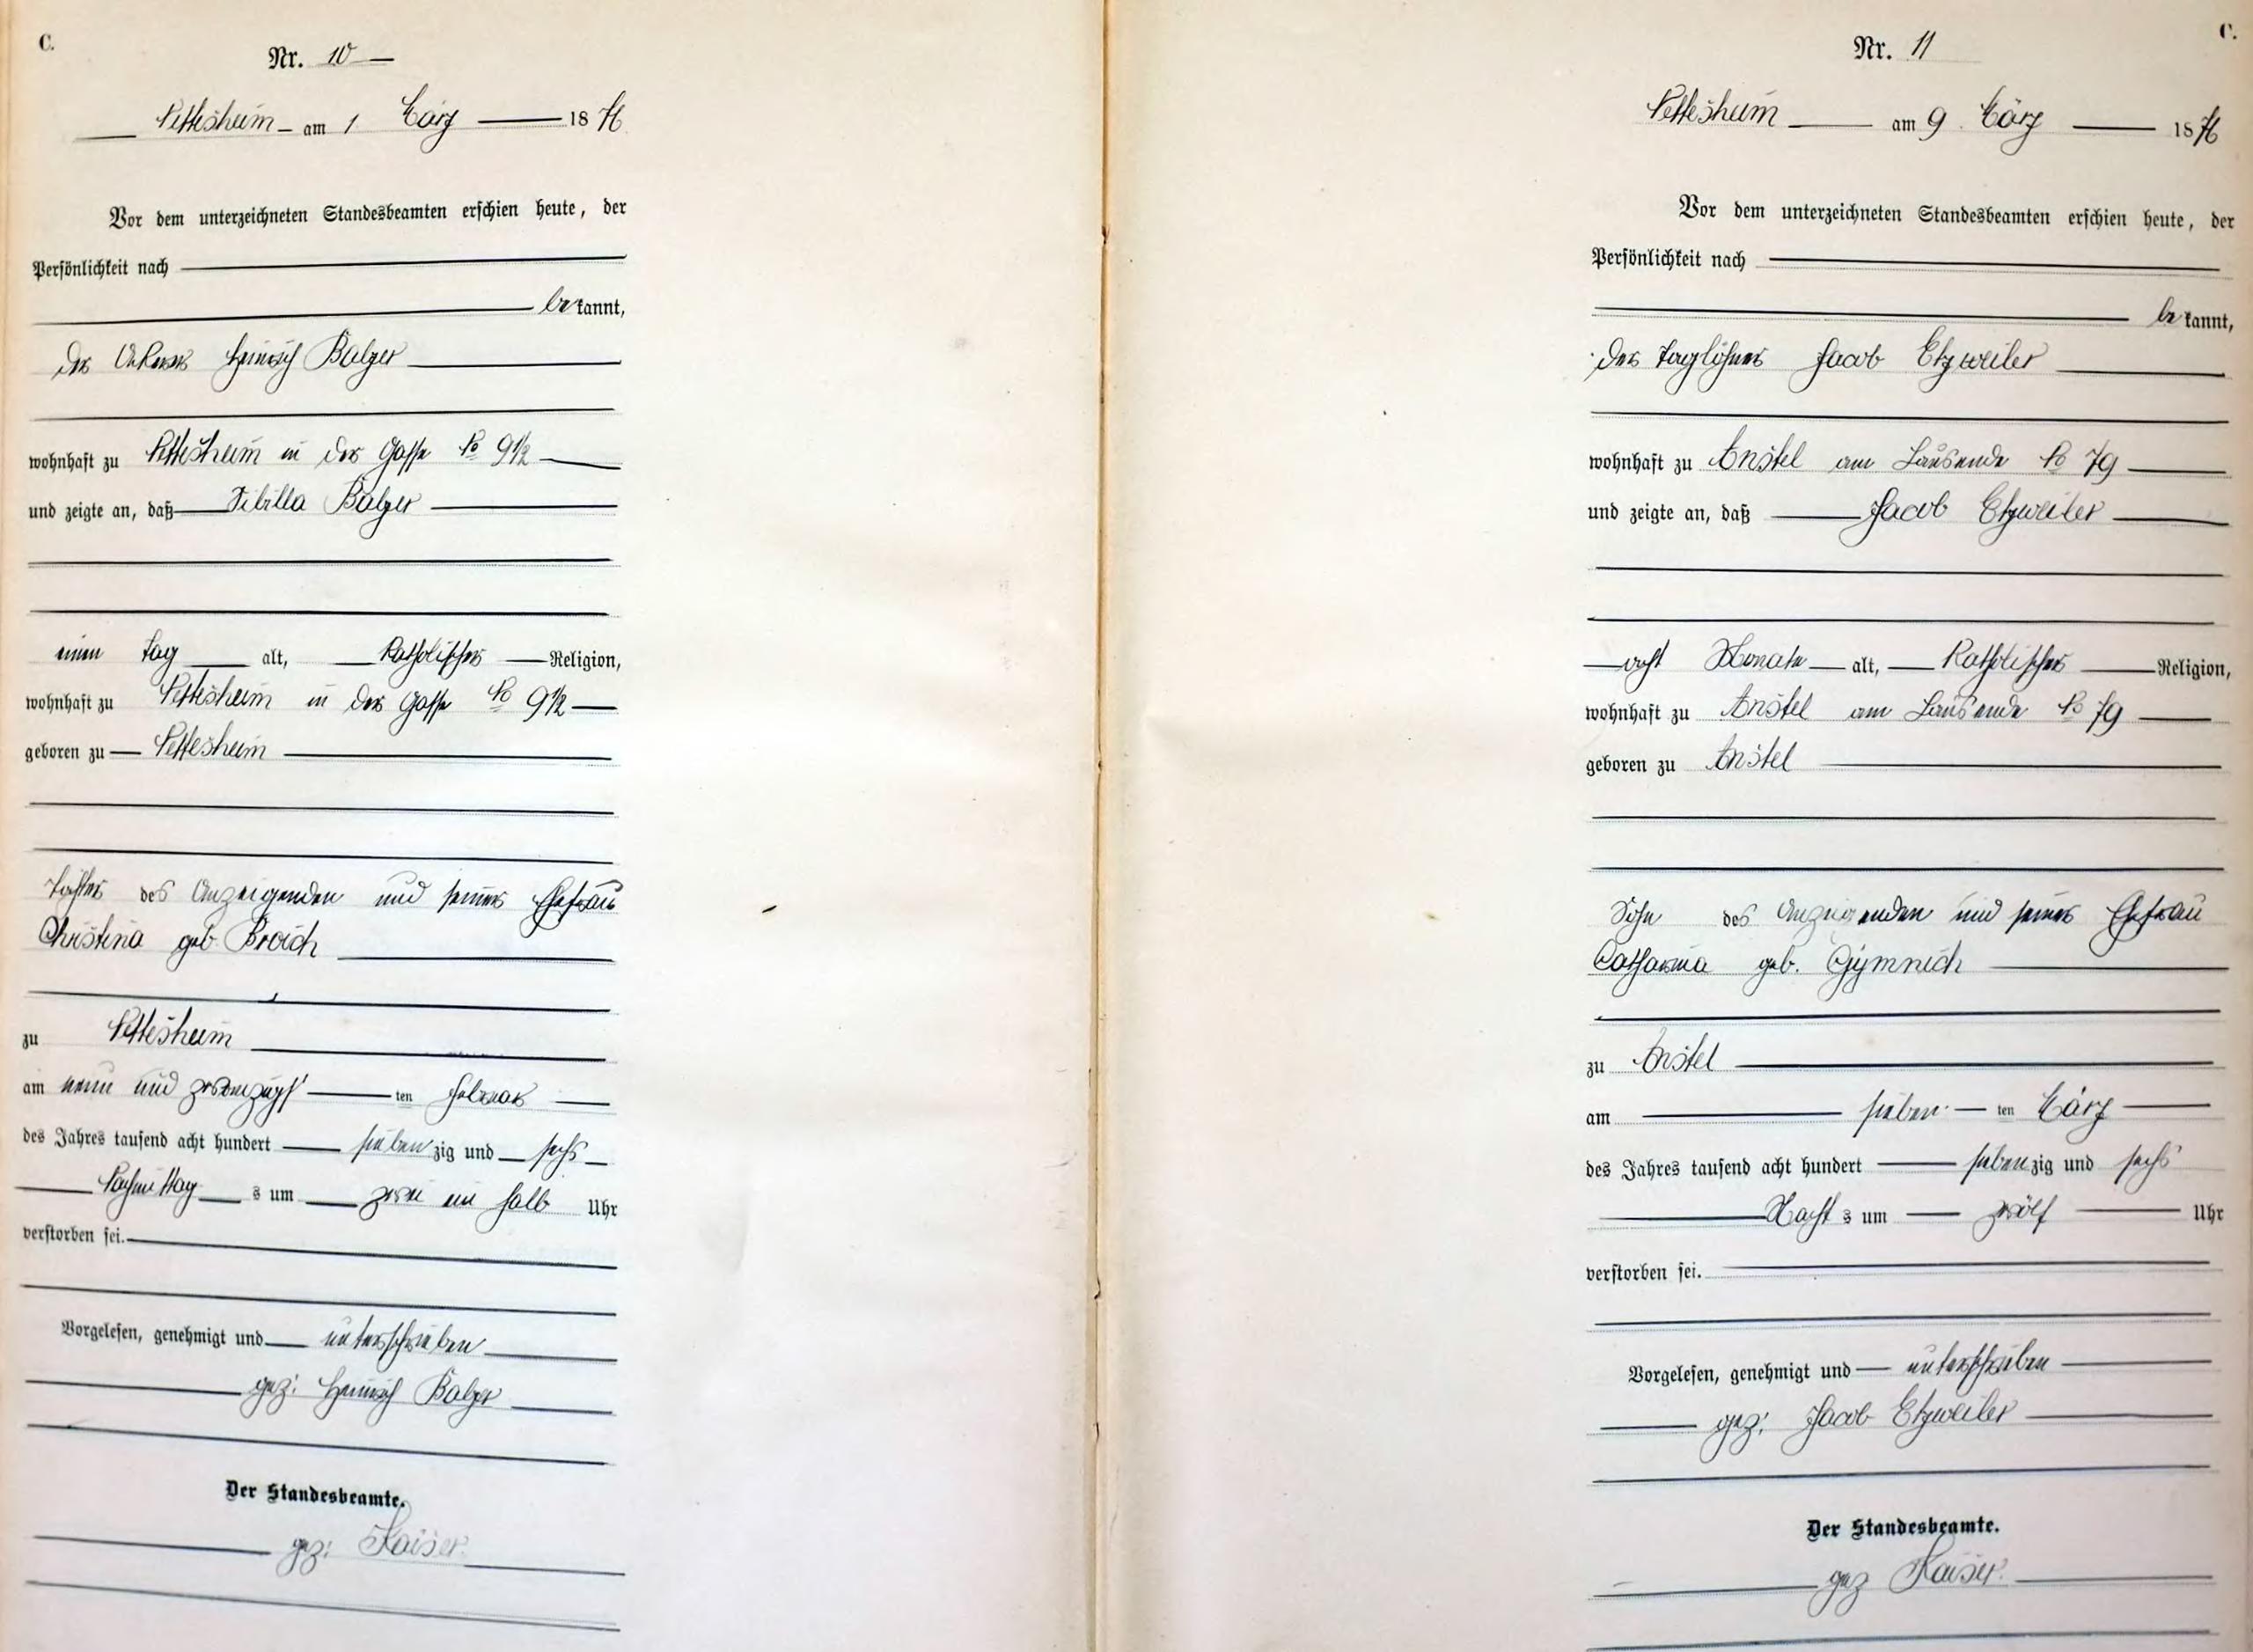 C.
Nr. 10
Nettesheim am 1 März 1876
Vor dem unterzeichneten Standesbeamten erschien heute, der
Persönlichkeit nach
bekannt,
der Ackerer Heinrich Balzer
wohnhaft zu Nettesheim in der Gasse No 9 1/2
und zeigte an, daß Sibilla Balzer
einen Tag alt, Katholischer Religion,
wohnhaft zu Nettesheim in der Gasse No 9 1/2
geboren zu Nettesheim
Tochter des Anzeigenden und seiner Ehefrau
Christina geb. Broich
zu Nettesheim
am neun und zwanzigsten Februar
des Jahres tausend acht hundert siebenzig und sechs
Nachmittags um zwei ein halb Uhr
verstorben sei.
Vorgelesen, genehmigt und unterschrieben
gez: Heinrich Balzer
Der Standesbeamte.
gez: Kaiser.
C.
Nr. 11
Nettesheim am 9. März 1876
Vor dem unterzeichneten Standesbeamten erschien heute, der
Persönlichkeit nach
bekannt,
der Taglöhner Jacob Etzweiler
wohnhaft zu Anstel am No 79
und zeigte an, daß Jacob Etzweiler
acht Monate alt, Katholischer Religion,
wohnhaft zu Anstel am No 79
geboren zu Anstel
Sohn des Anzeigenden und seiner Ehefrau
Catharina geb. Gymnich
zu Anstel
am siebenten März
des Jahres tausend acht hundert siebenzig und sechs
Nachts um zwölf Uhr
verstorben sei.
Vorgelesen, genehmigt und unterschrieben
gez: Jacob Etzweiler
Der Standesbeamte.
gez Kaiser.